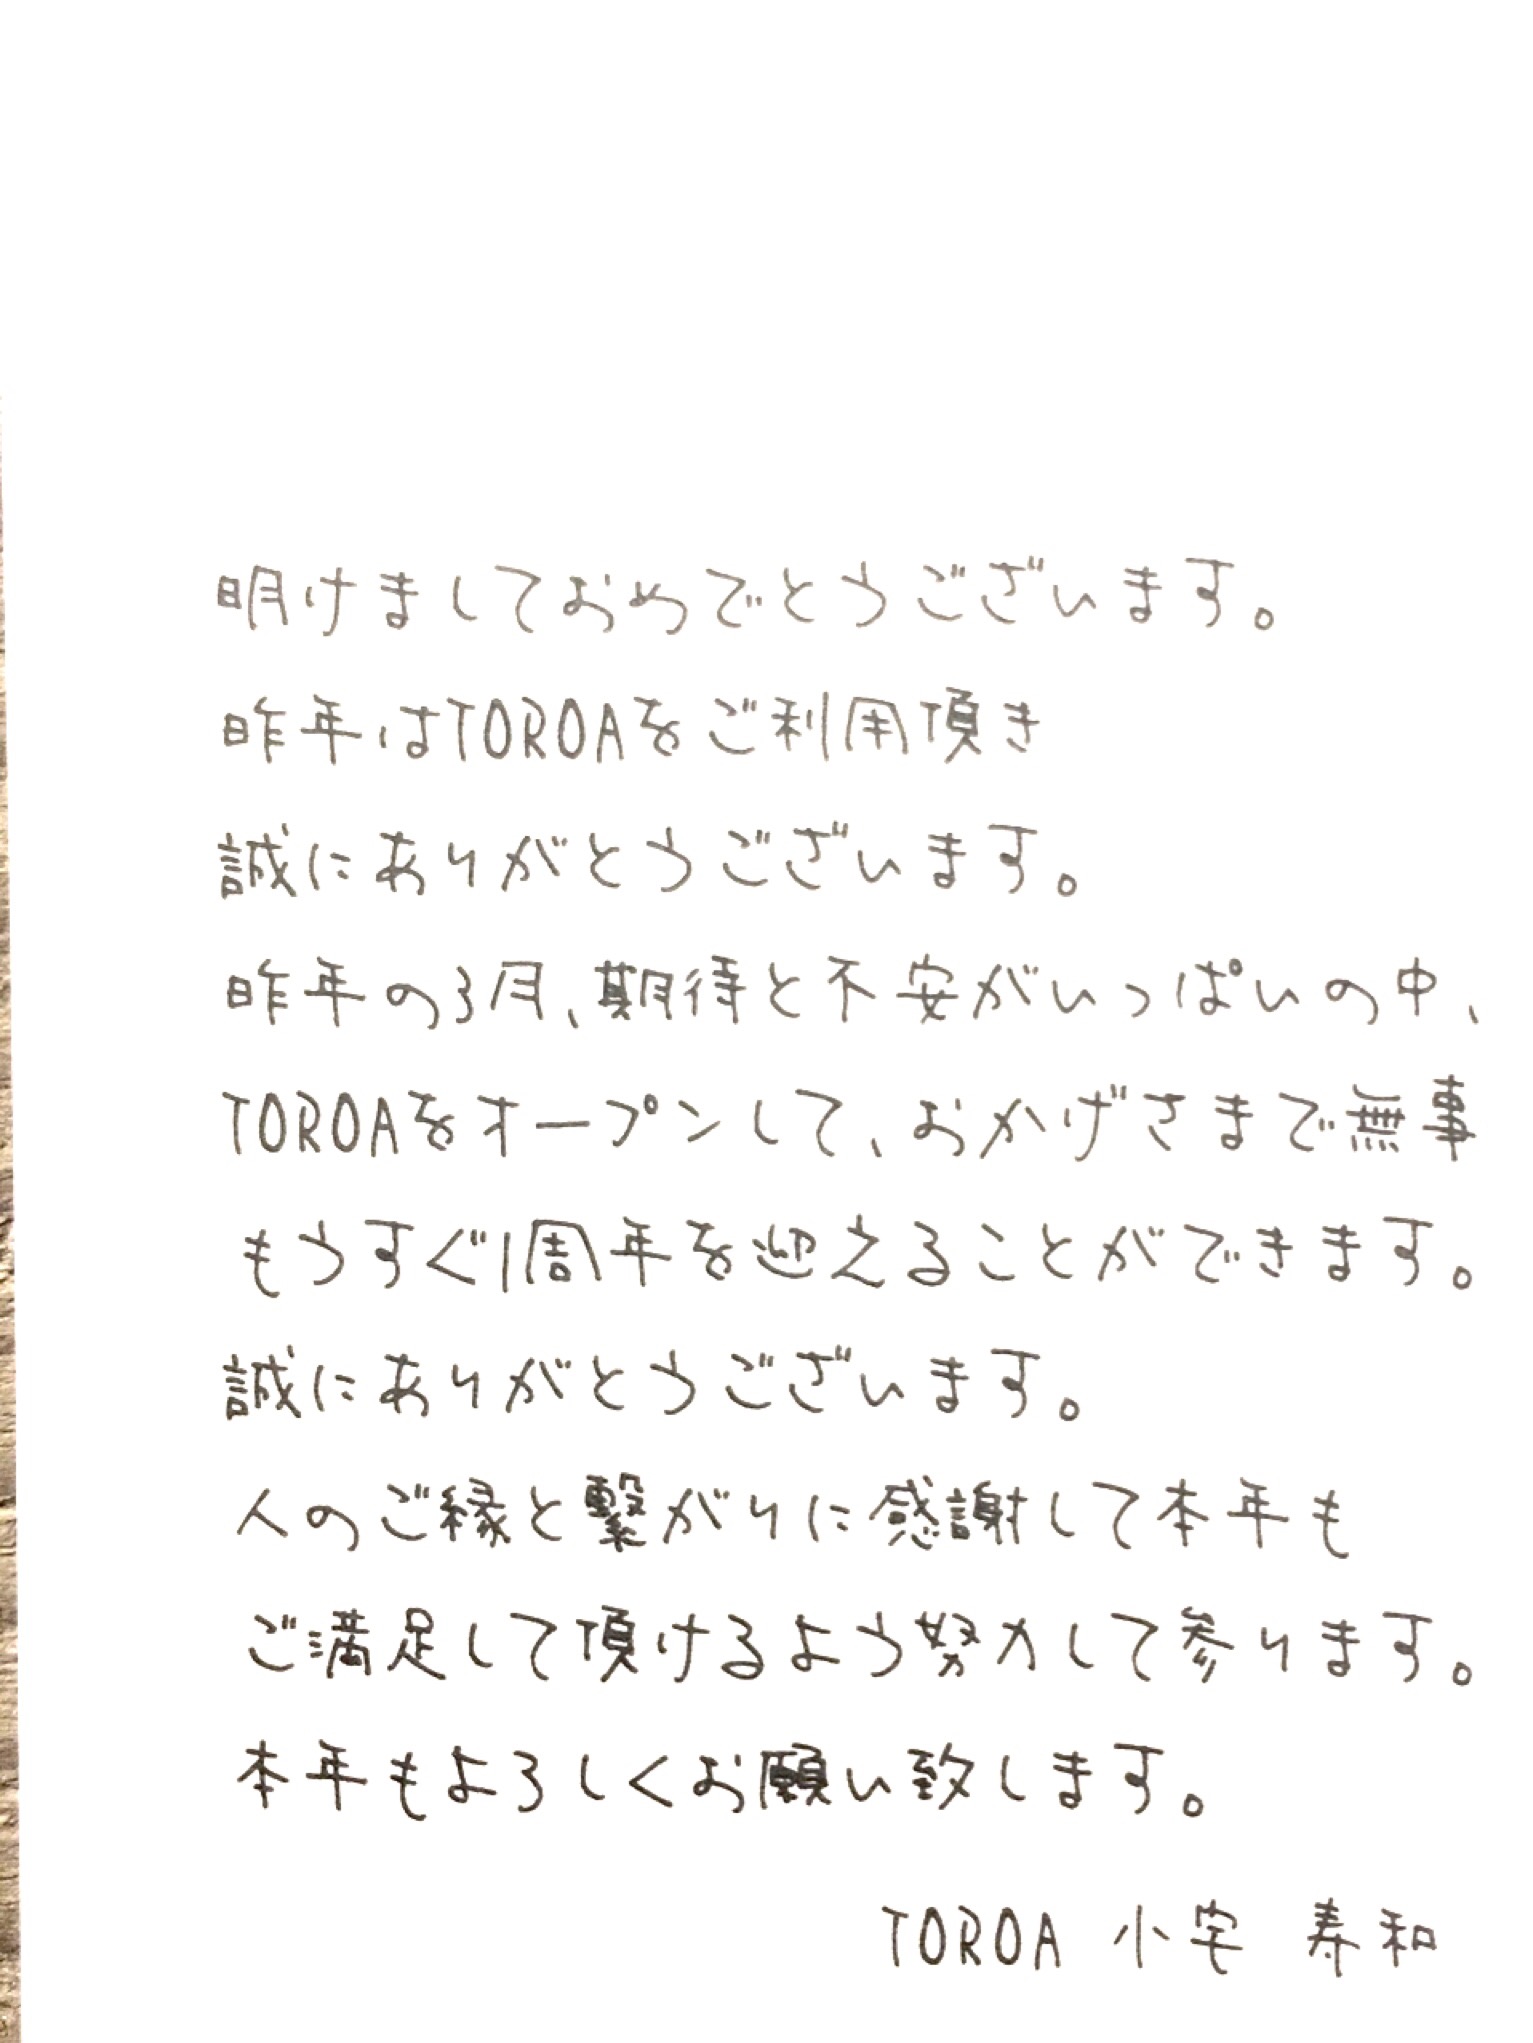 明けましておめでとうございます。
昨年はTOROAをご利用頂き
誠にありがとうございます。
昨年の3月、期待と不安がいっぱいの中、
TOROAをオープンして、おかげさまで無事
もうすぐ1周年を迎えることができます。
誠にありがとうございます。
人のご縁と繋がりに感謝して本年も
ご満足して頂けるよう努力して参ります。
本年もよろしくお願い致します。
TOROA 小宅 寿和